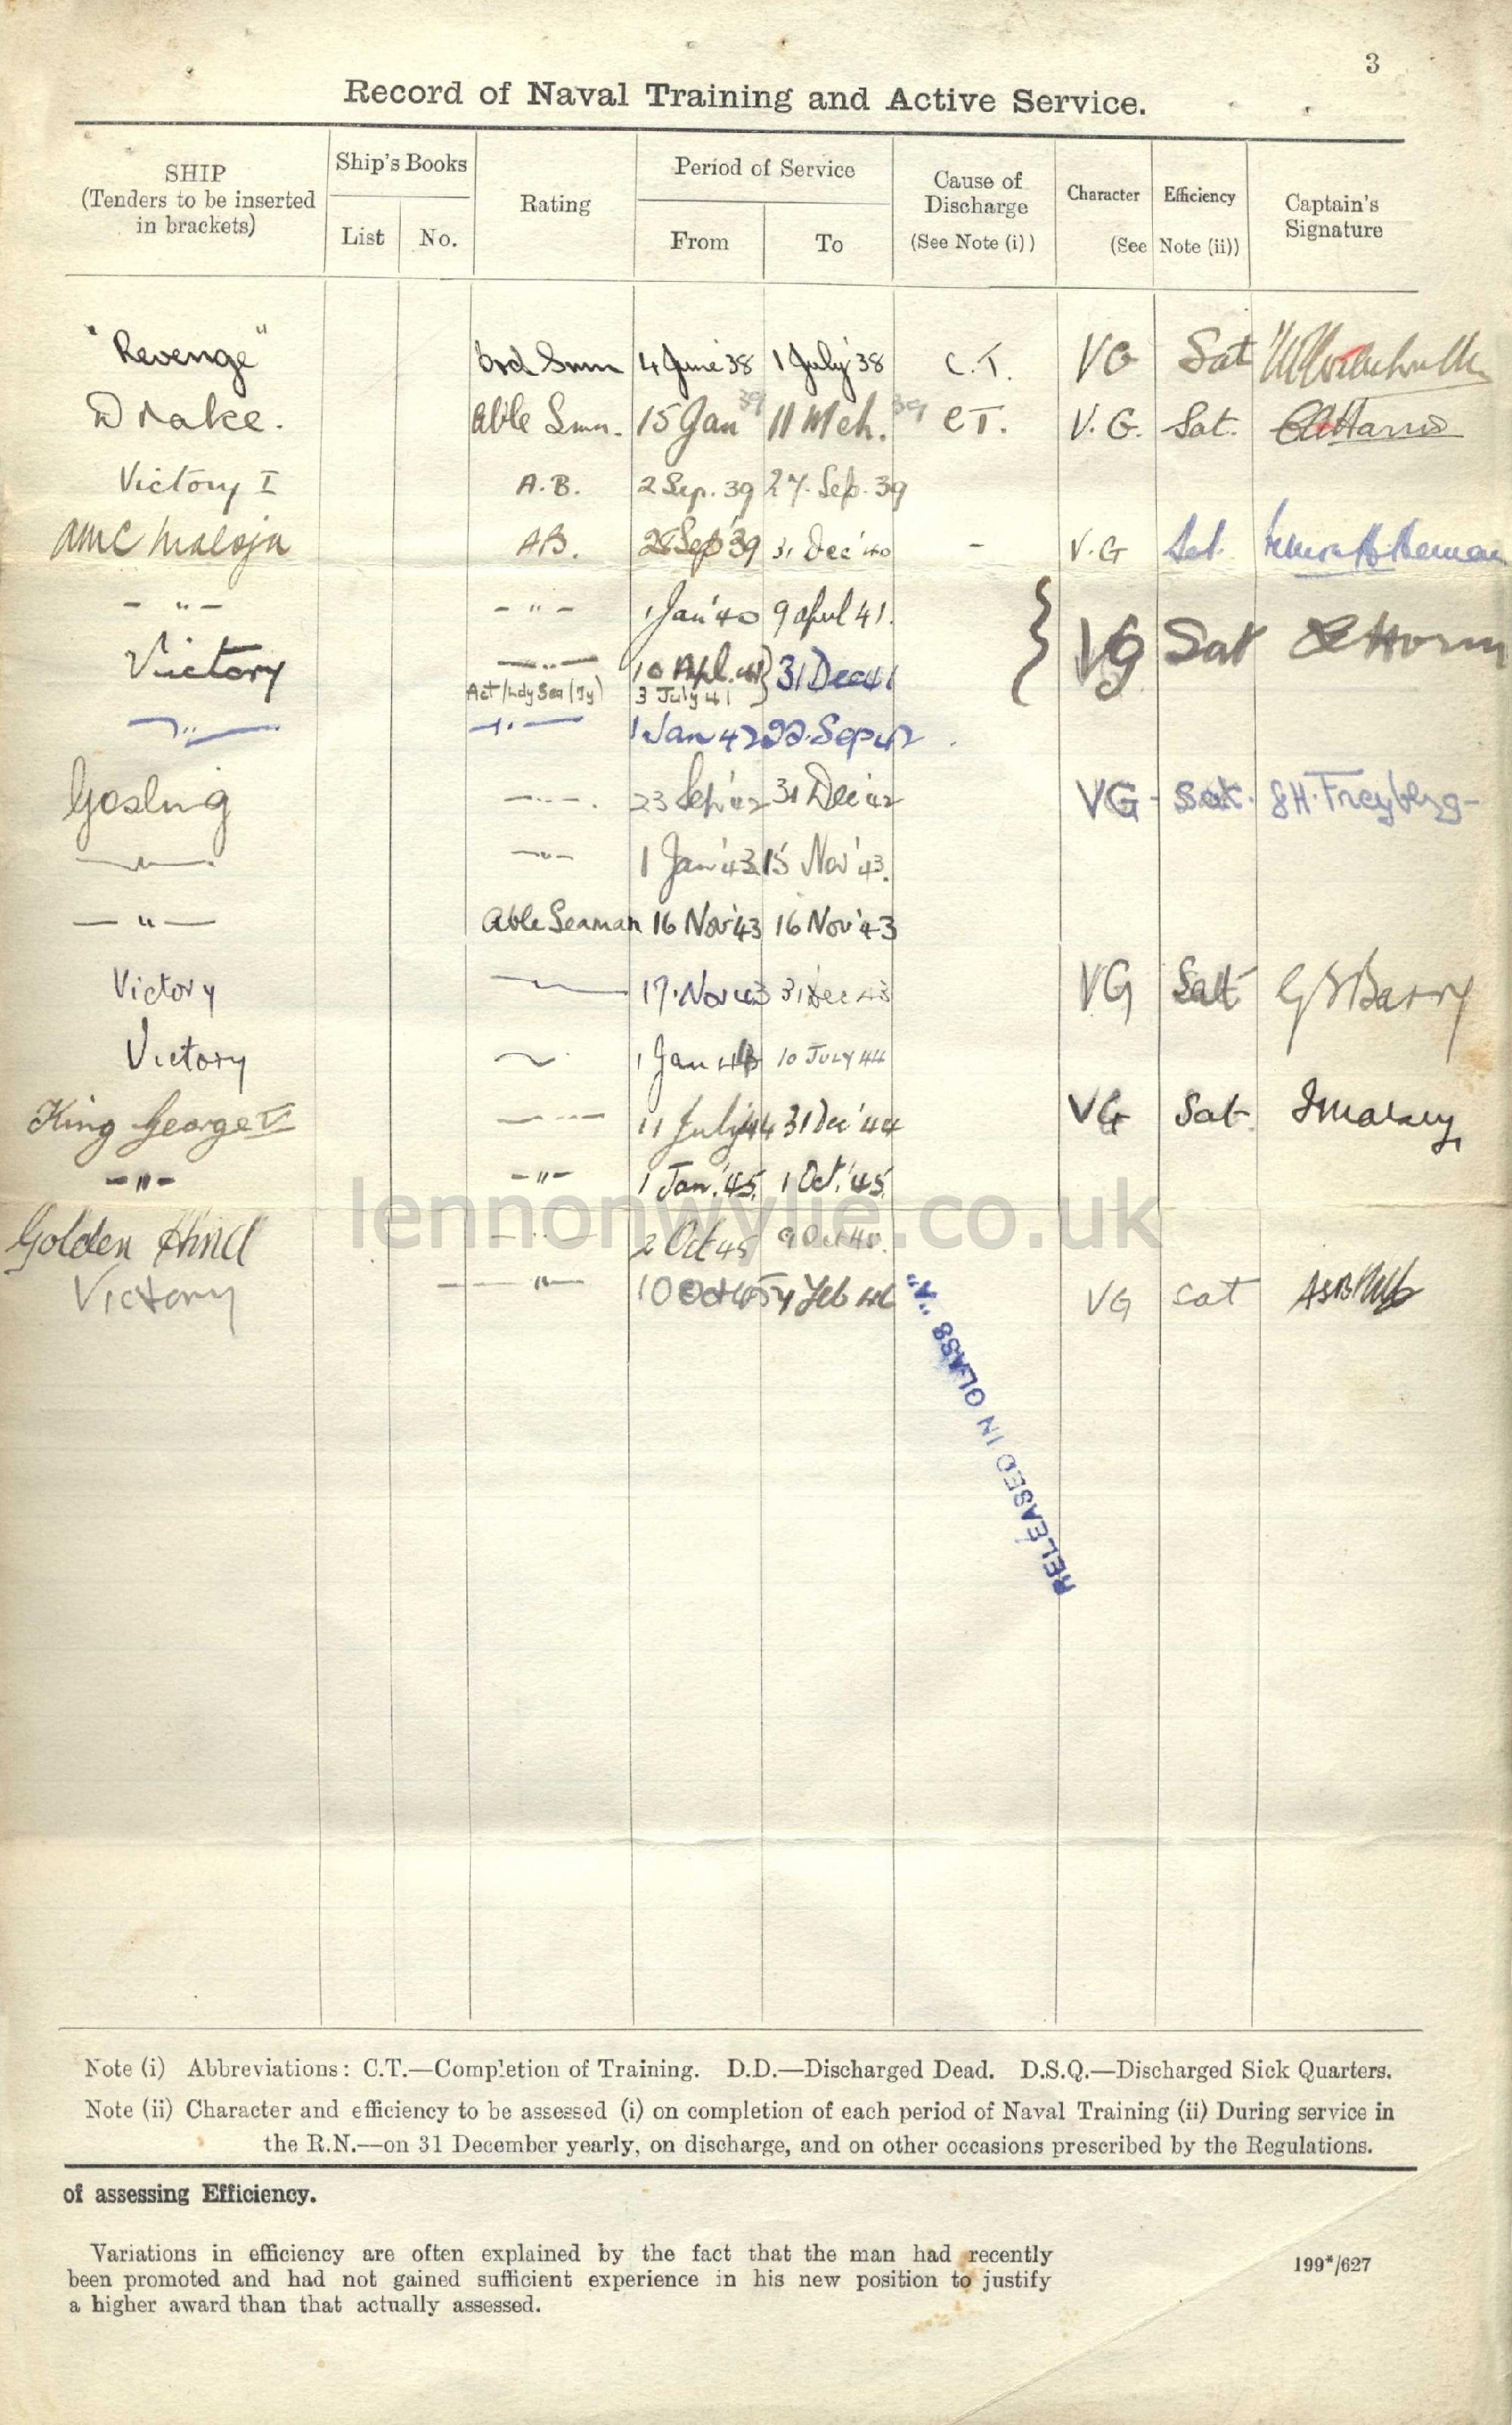 3
Record of Naval Training and Active Service.
SHIP
(Tenders to be inserted
in brackets)
Ship's Books
List No.
Rating
Period of Service
From To
Cause of
Discharge
(See Note (i))
Character Efficiency
(See Note (ii))
Captain's
Signature
"Revenge" Ord Smn 4 June '38 1 July '38 C.T. VG Sat
Drake. Able Smn. 15 Jan 39 11 Mch. 39 C.T. V.G. Sat.
Victory I A.B. 2 Sep. 39 27. Sep. 39
AMC Maloja AB. 28 Sep '39 31 Dec '40 - V.G Sat.
- " - - " - 1 Jan '40 9 April 41.
Victory - " - 10 Apl. 41 } 31 Dec 41 } VG Sat
Act/Ldg Sea (Ty) 3 July 41
- " - - " - 1 Jan 42 22. Sep 42
Gosling - " - 23 Sep '42 31 Dec '42 VG - Sat. SH. Freyberg -
- " - - " - 1 Jan '43 15 Nov '43.
- " - Able Seaman 16 Nov '43 16 Nov '43
Victory 17. Nov 43 31 Dec 43 VG Sat G Barry
Victory 1 Jan 44 10 JULY 44
King George V - " - 11 July 44 31 Dec '44 VG Sat.
- " - - " - 1 Jan. '45. 1 Oct. '45.
Golden Hind - " - 2 Oct 45 9 Oct 45.
Victory - " - 10 Oct 45 4 Feb 46 VG Sat
RELEASED IN CLASS "A"
lennonwylie.co.uk
Note (i) Abbreviations: C.T.—Completion of Training. D.D.—Discharged Dead. D.S.Q.—Discharged Sick Quarters.
Note (ii) Character and efficiency to be assessed (i) on completion of each period of Naval Training (ii) During service in
the R.N.—on 31 December yearly, on discharge, and on other occasions prescribed by the Regulations.
of assessing Efficiency.
Variations in efficiency are often explained by the fact that the man had recently
been promoted and had not gained sufficient experience in his new position to justify
a higher award than that actually assessed.
199*/627